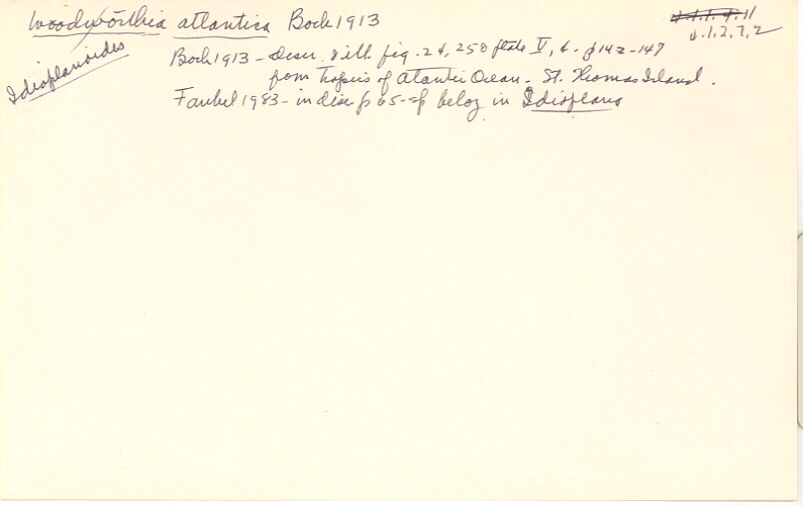 Woodworthia atlantica Bock 1913
d.1.1.4.11
d.1.2.7.2
Idioplanoides
Bock 1913 - Descr. & ill. fig. 24, 25 plate V, 6. p 142-147
from tropics of Atlantic Ocean - St. Thomas Island.
Faubel 1983 - in disc p 65 - sp belog in Idioplana